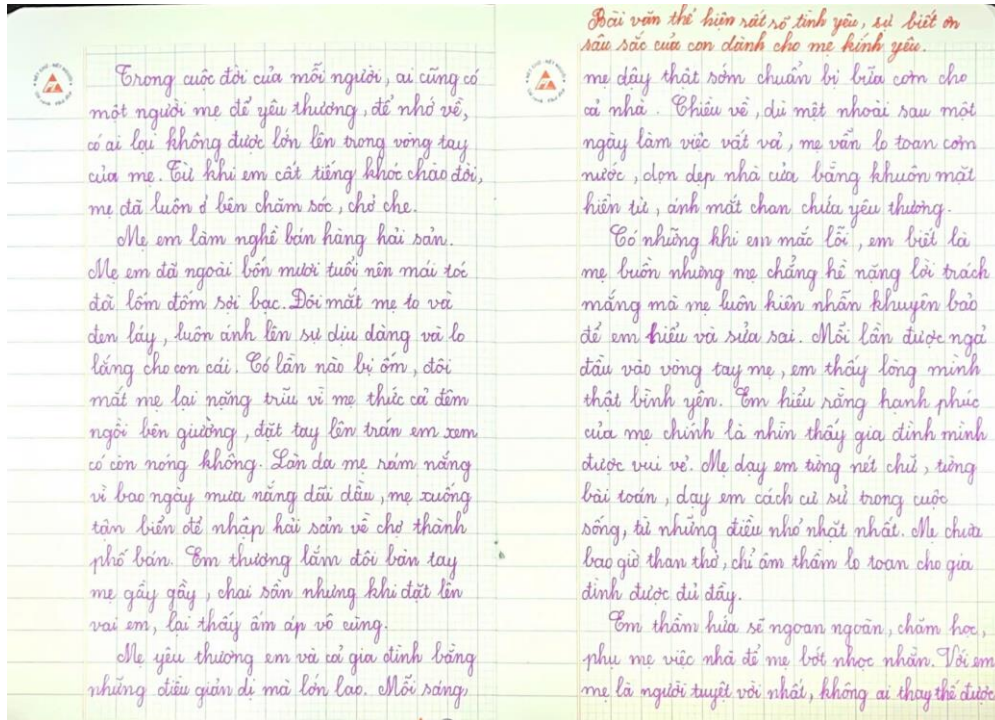 Trong cuộc đời của mỗi người, ai cũng có
một người mẹ để yêu thương, để nhớ về,
có ai lại không được lớn lên trong vòng tay
của mẹ. Từ khi em cất tiếng khóc chào đời,
mẹ đã luôn ở bên chăm sóc, chở che.
Mẹ em làm nghề bán hàng hải sản.
Mẹ em đã ngoài bốn mươi tuổi nên mái tóc
đã lốm đốm sợi bạc. Đôi mắt mẹ to và
đen láy, luôn ánh lên sự dịu dàng và lo
lắng cho con cái. Có lần nào bị ốm, đôi
mắt mẹ lại nặng trĩu vì mẹ thức cả đêm
ngồi bên giường, đặt tay lên trán em xem
có còn nóng không. Làn da mẹ rám nắng
vì bao ngày mưa nắng dãi dầu, mẹ xuống
tận biển để nhập hải sản về chợ thành
phố bán. Em thương lắm đôi bàn tay
mẹ gầy gầy, chai sần nhưng khi đặt lên
vai em, lại thấy ấm áp vô cùng.
Mẹ yêu thương em và cả gia đình bằng
những điều giản dị mà lớn lao. Mỗi sáng,
Bài văn thể hiện rất rõ tình yêu, sự biết ơn
sâu sắc của con dành cho mẹ kính yêu.
mẹ dậy thật sớm chuẩn bị bữa cơm cho
cả nhà. Chiều về, dù mệt nhoài sau một
ngày làm việc vất vả, mẹ vẫn lo toan cơm
nước, dọn dẹp nhà cửa bằng khuôn mặt
hiền từ, ánh mắt chan chứa yêu thương.
Có những khi em mắc lỗi, em biết là
mẹ buồn nhưng mẹ chẳng hề nặng lời trách
mắng mà mẹ luôn kiên nhẫn khuyên bảo
để em hiểu và sửa sai. Mỗi lần được ngả
đầu vào vòng tay mẹ, em thấy lòng mình
thật bình yên. Em hiểu rằng hạnh phúc
của mẹ chính là nhìn thấy gia đình mình
được vui vẻ. Mẹ dạy em từng nét chữ, từng
bài toán, dạy em cách cư sử trong cuộc
sống, từ những điều nhỏ nhặt nhất. Mẹ chưa
bao giờ than thở, chỉ âm thầm lo toan cho gia
đình được đủ đầy.
Em thầm hứa sẽ ngoan ngoãn, chăm học,
phụ mẹ việc nhà để mẹ bớt nhọc nhằn. Với em
mẹ là người tuyệt vời nhất, không ai thay thế được